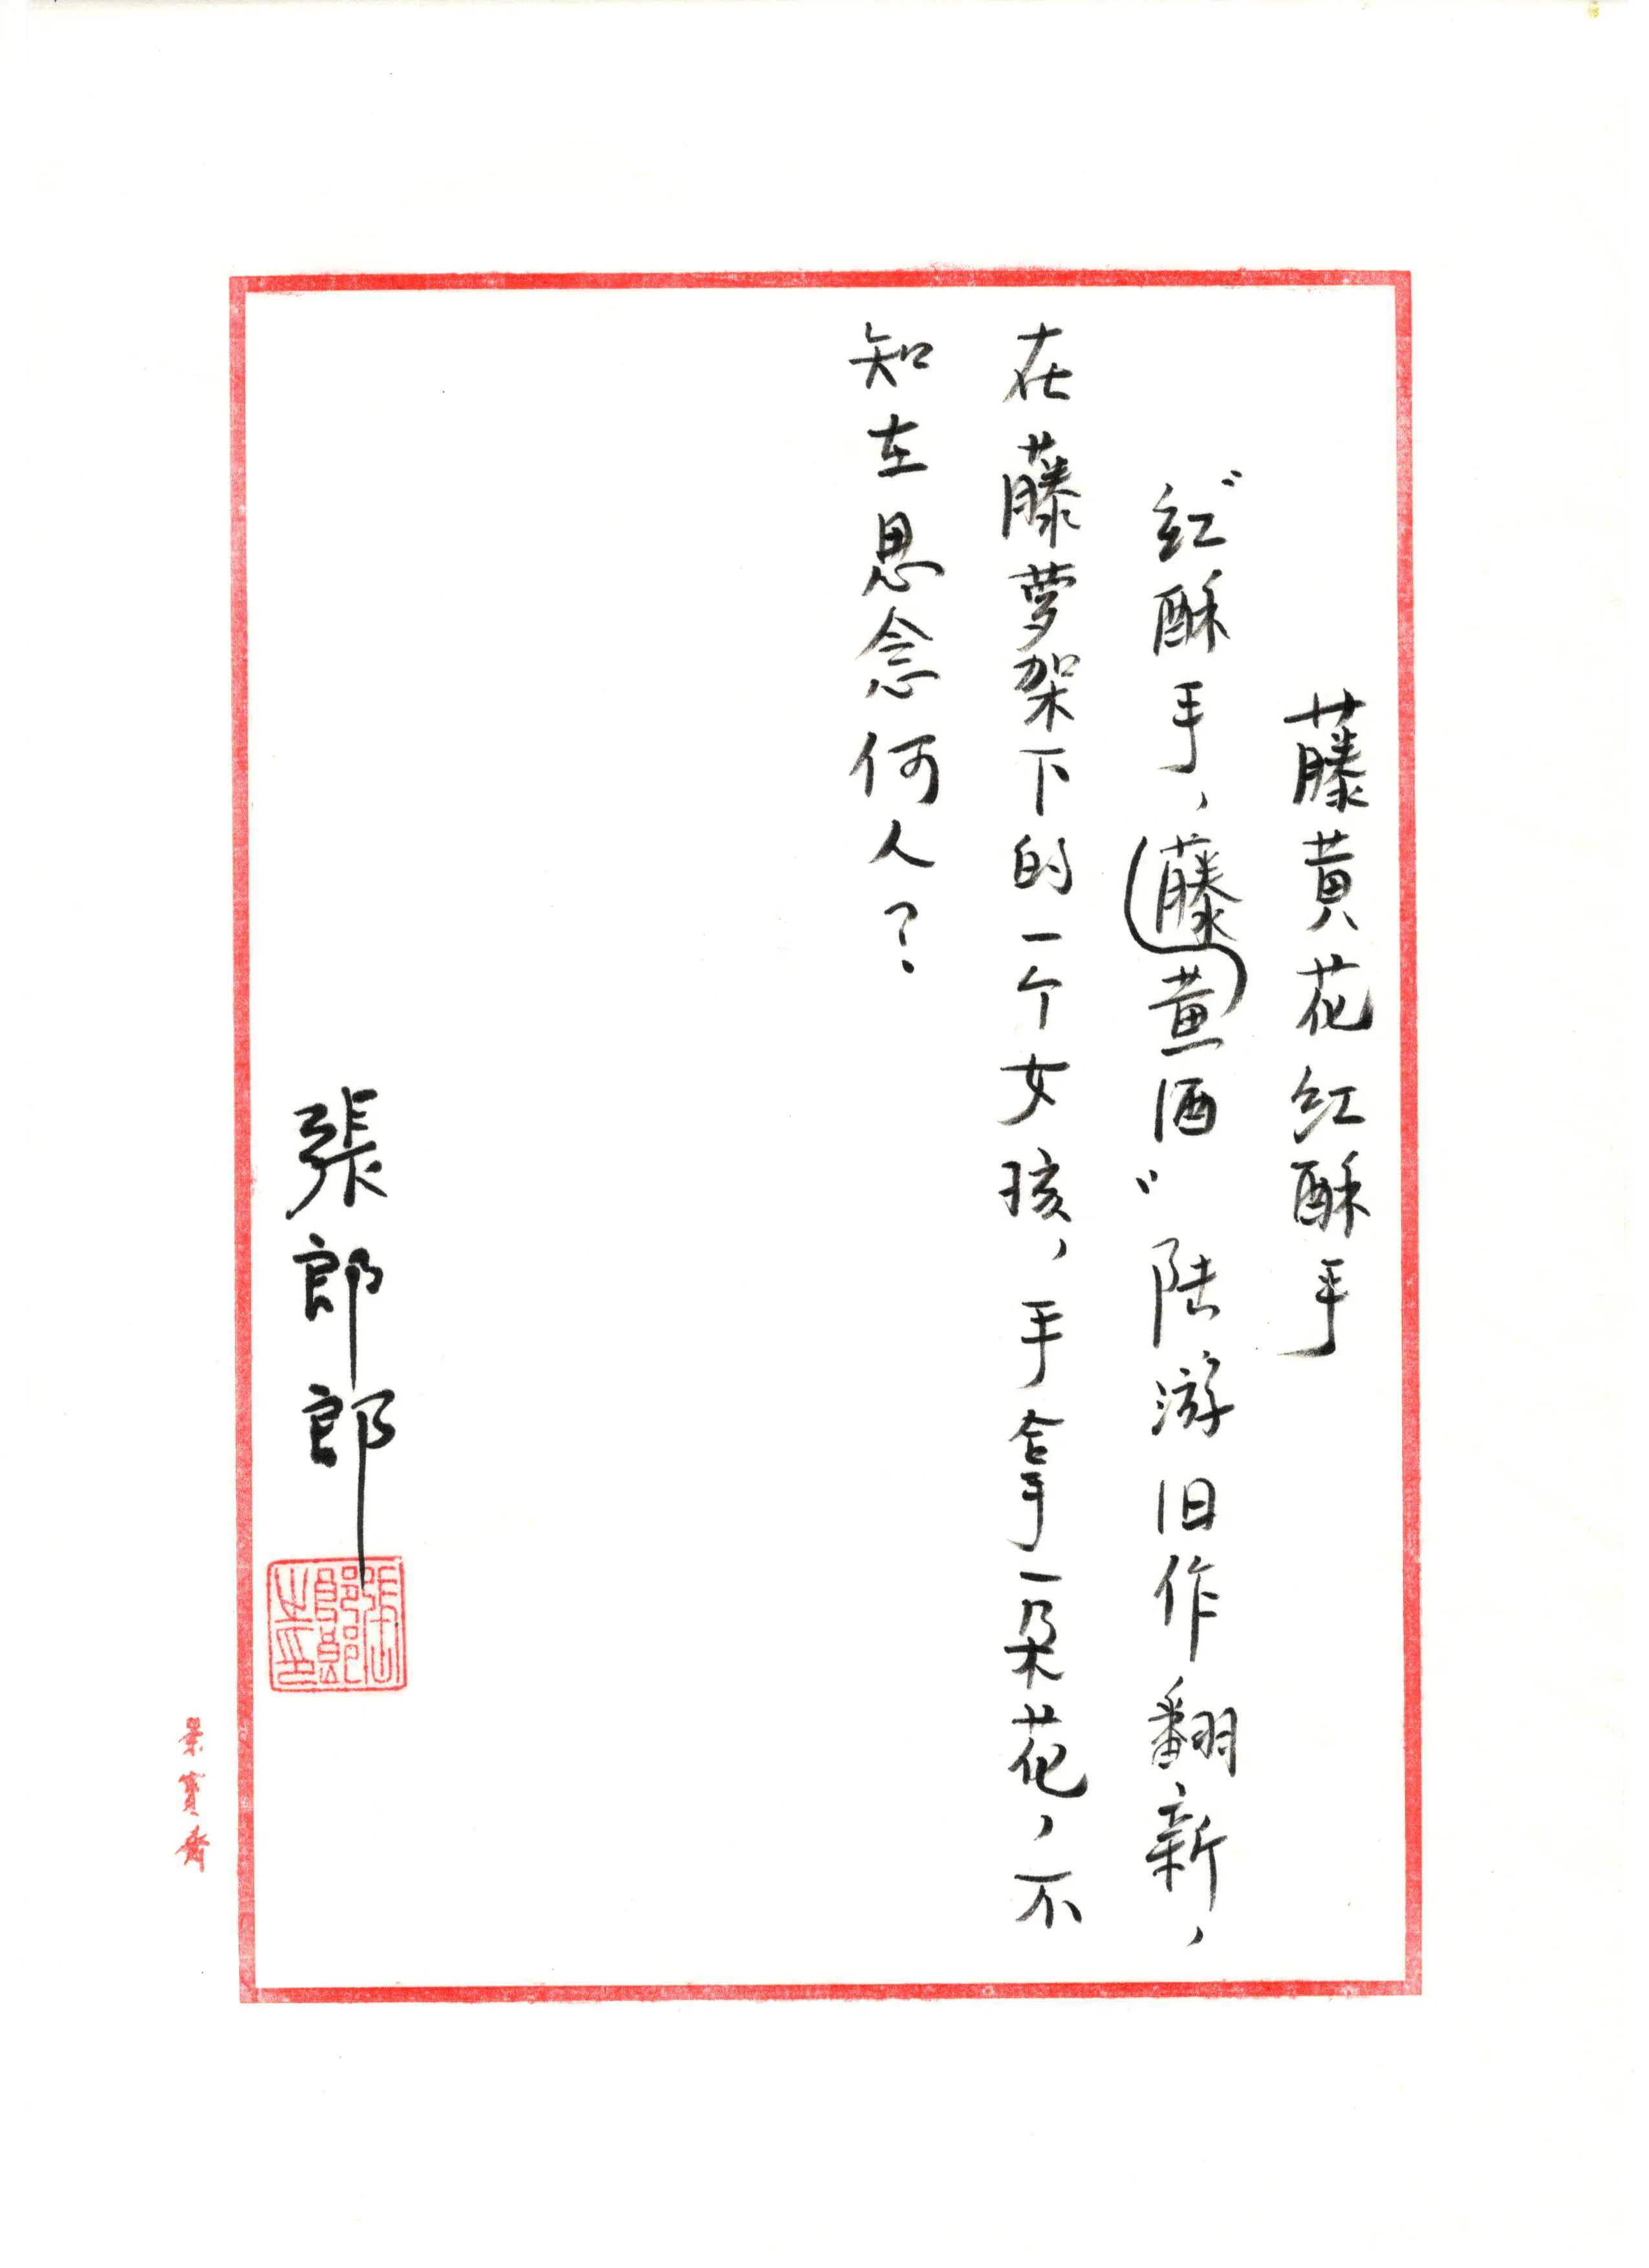 藤黄花红酥手
“红酥手，藤黄酒”陆游旧作翻新，
在藤萝架下的一个女孩，手拿一朵花，不
知在思念何人？
張郎郎
張郎郎之印
荣寳齋